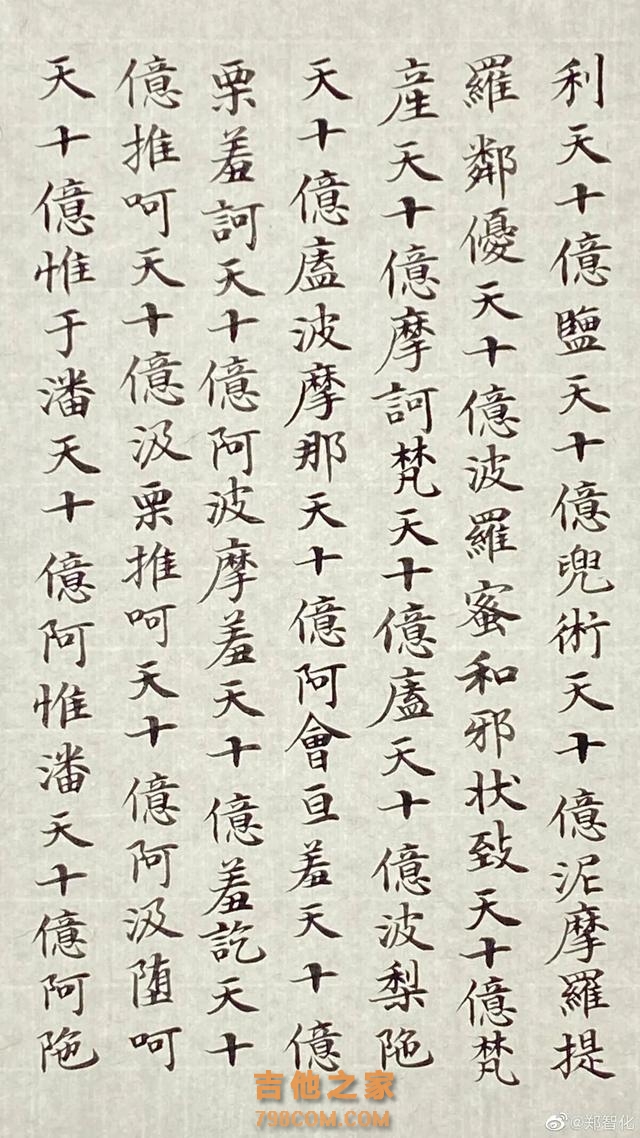 利天十億鹽天十億兜術天十億泥摩羅提
羅鄰優天十億波羅蜜和邪状致天十億梵
産天十億摩訶梵天十億廅天十億波梨陁
天十億廅波摩那天十億阿會亘羞天十億
栗羞訶天十億阿波摩羞天十億羞訖天十
億推呵天十億汲栗推呵天十億阿汲墮呵
天十億惟于潘天十億阿惟潘天十億阿陁
吉他之家
798COM.COM
@郑智化